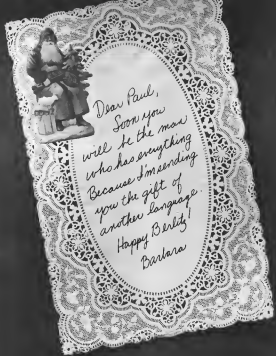 Dear Paul,
Soon you
will be the man
who has everything
Because I'm sending
you the gift of
another language.
Happy Berlitz!
Barbara